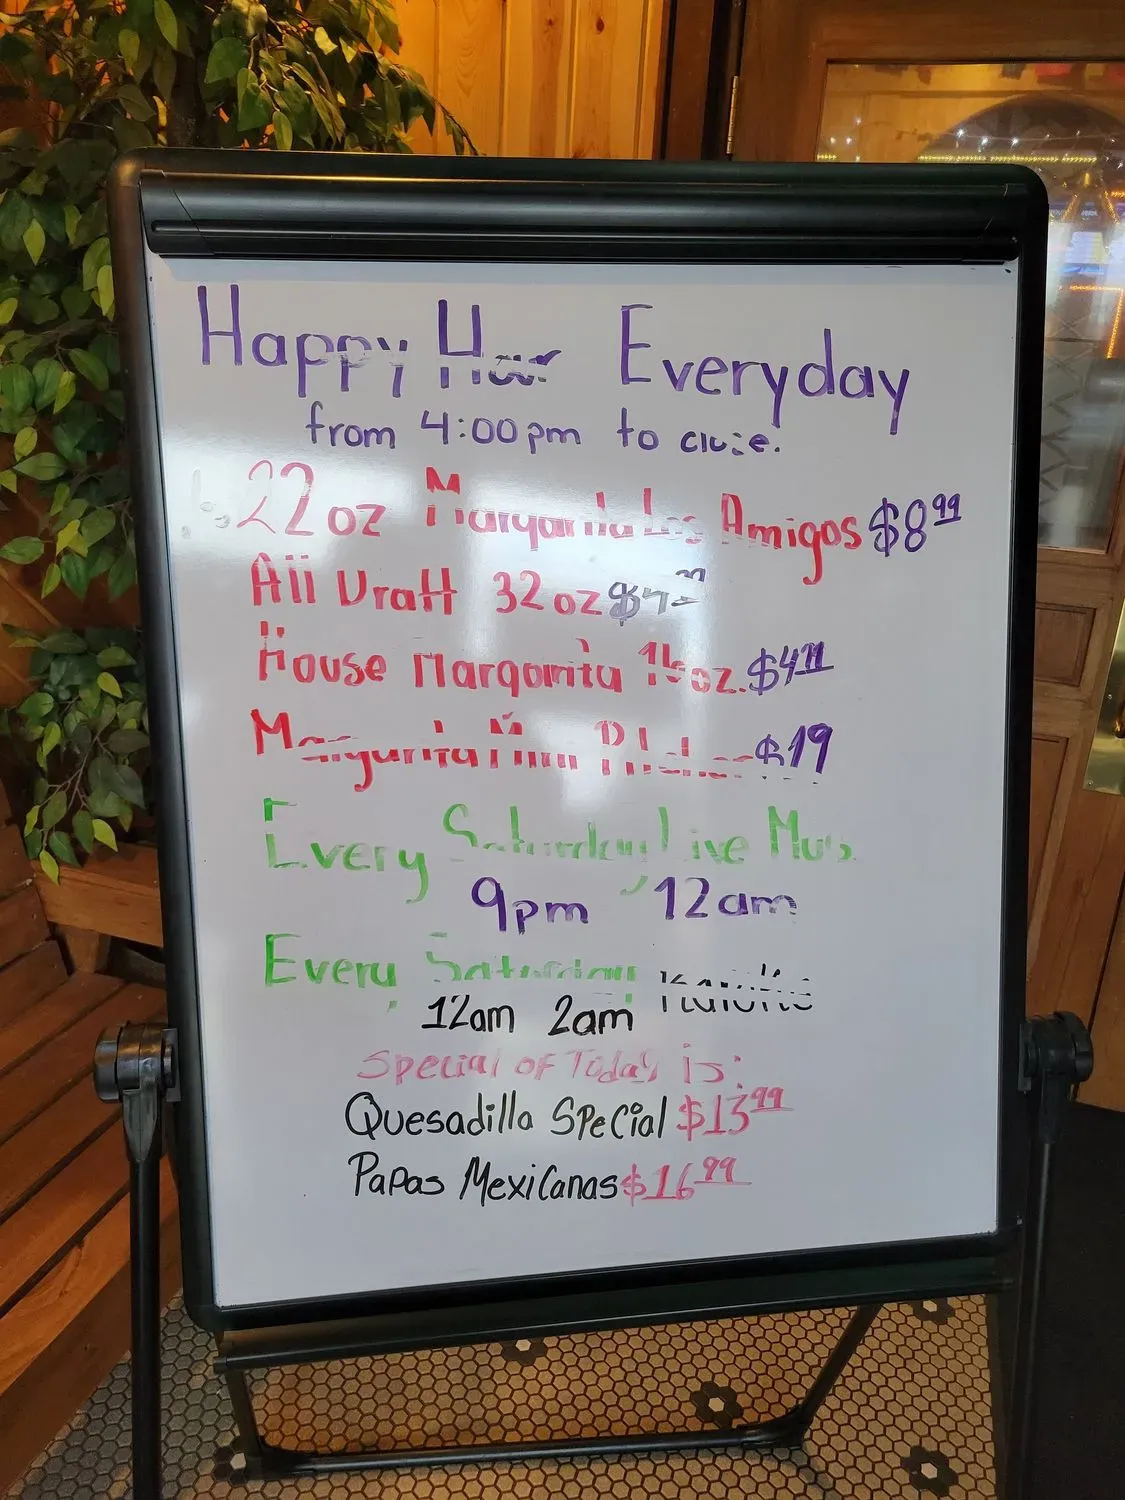 Happy Hour Everyday
from 4:00pm to close.
22 oz Margarita Los Amigos $8.99
All Draft 32 oz
House Margarita 16 oz. $4.99
Margarita Mini Pitcher $19
Every Saturday Live Music
9pm 12am
Every Saturday Karaoke
12am 2am
Special of Today is:
Quesadilla Special $13.99
Papas Mexicanas $16.99